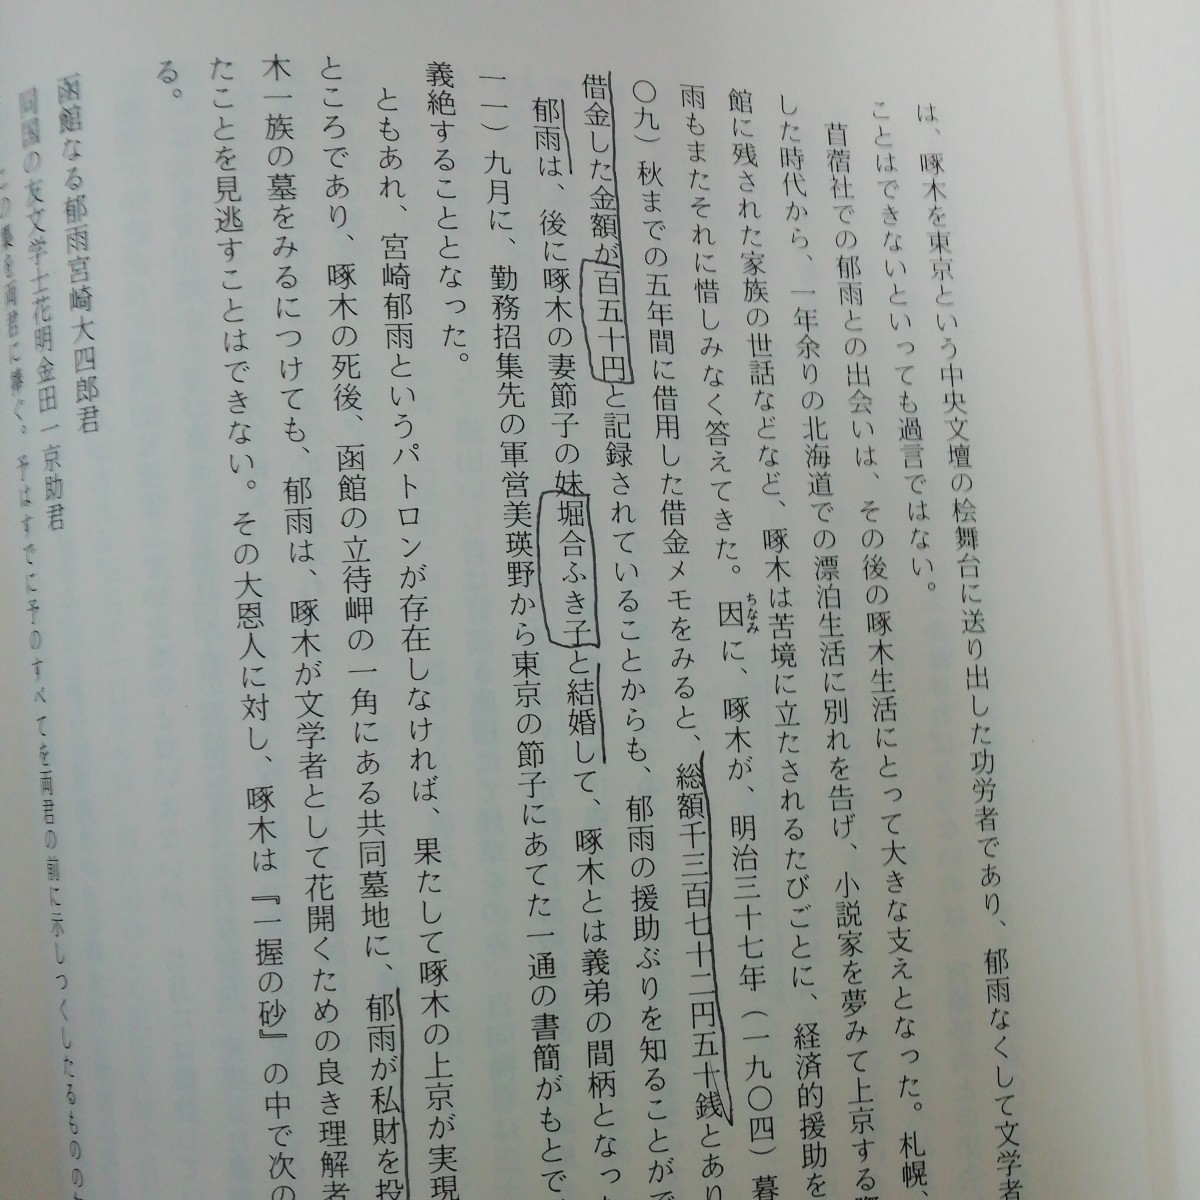 は、啄木を東京という中央文壇の桧舞台に送り出した功労者であり、郁雨なくして文学者
ことはできないといっても過言ではない。
苜蓿社での郁雨との出会いは、その後の啄木生活にとって大きな支えとなった。札幌、
した時代から、一年余りの北海道での漂泊生活に別れを告げ、小説家を夢みて上京する際
館に残された家族の世話などなど、啄木は苦境に立たされるたびごとに、経済的援助を
雨もまたそれに惜しみなく答えてきた。因に、啄木が、明治三十七年（一九〇四）暮
ちなみ
〇九）秋までの五年間に借用した借金メモをみると、総額千三百七十二円五十銭とあり
借金した金額が百五十円と記録されていることからも、郁雨の援助ぶりを知ることがで
郁雨は、後に啄木の妻節子の妹堀合ふき子と結婚して、啄木とは義弟の間柄となっ
一一）九月に、勤務招集先の軍営美瑛野から東京の節子にあてた一通の書簡がもとで、
義絶することとなった。
ともあれ、宮崎郁雨というパトロンが存在しなければ、果たして啄木の上京が実現
ところであり、啄木の死後、函館の立待岬の一角にある共同墓地に、郁雨が私財を投
木一族の墓をみるにつけても、郁雨は、啄木が文学者として花開くための良き理解者
たことを見逃すことはできない。その大恩人に対し、啄木は『一握の砂』の中で次の
る。
函館なる郁雨宮崎大四郎君
同国の友文学士花明金田一京助君
この集を両君に捧ぐ。予はすでに予のすべてを両君の前に示しつくしたるものの